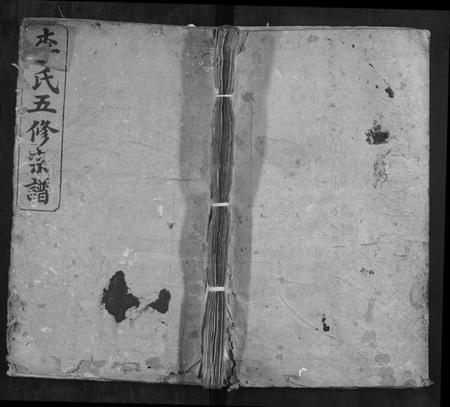 氏五修宗譜